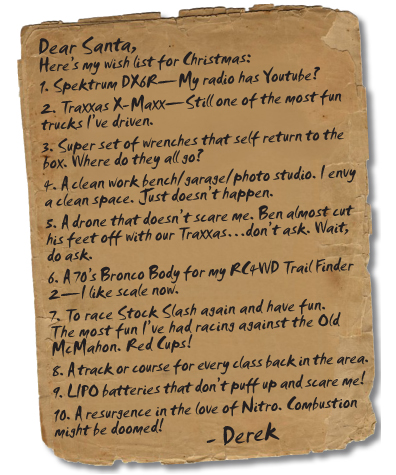 Dear Santa,
Here's my wish list for Christmas:
1. Spektrum DX6R—My radio has Youtube?
2. Traxxas X-Maxx—Still one of the most fun
trucks I've driven.
3. Super set of wrenches that self return to the
box. Where do they all go?
4. A clean work bench/garage/photo studio. I envy
a clean space. Just doesn't happen.
5. A drone that doesn't scare me. Ben almost cut
his feet off with our Traxxas...don't ask. Wait,
do ask.
6. A 70's Bronco Body for my RC4WD Trail Finder
2—I like scale now.
7. To race Stock Slash again and have fun.
The most fun I've had racing against the Old
McMahon. Red Cups!
8. A track or course for every class back in the area.
9. LIPO batteries that don't puff up and scare me!
10. A resurgence in the love of Nitro. Combustion
might be doomed!
- Derek